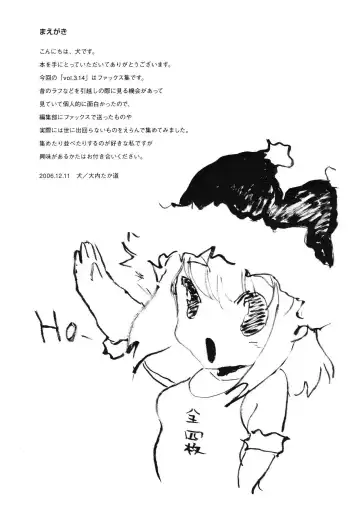 まえがき
こんにちは、犬です。
本を手にとっていただいてありがとうございます。
今回の「vol.3.14」はファックス集です。
昔のラフなどを引越しの際に見る機会があって
見ていて個人的に面白かったので、
編集部にファックスで送ったものや
実際には世に出回らないものをえらんで集めてみました。
集めたり並べたりするのが好きな私ですが
興味があるかたはお付き合いください。
2006.12.11 犬／大内たか道
Ho.
全四枚